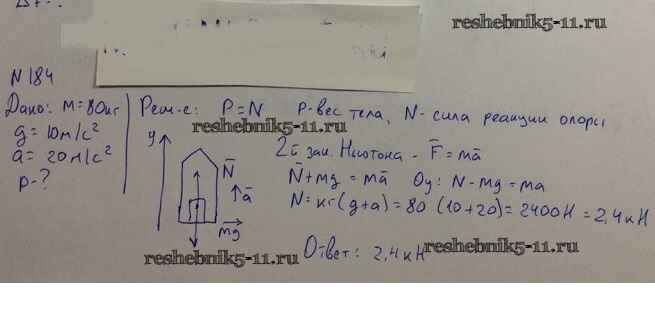 reshebnik5-11.ru
N184
Дано: m=80кг
g = 10м/с²
a = 20м/с²
P-?
Реш-е: P=N P-вес тела, N- сила реакции опоры
reshebnik5-11.ru
2й зак. Ньютона - F̅=ma̅
N̅+mg=ma̅ Oy: N-mg=ma
N=кг(g+a)=80 (10+20)=2400Н=2,4кН
y N̅ a̅ mg
Ответ: 2,4кН
reshebnik5-11.ru
reshebnik5-11.ru